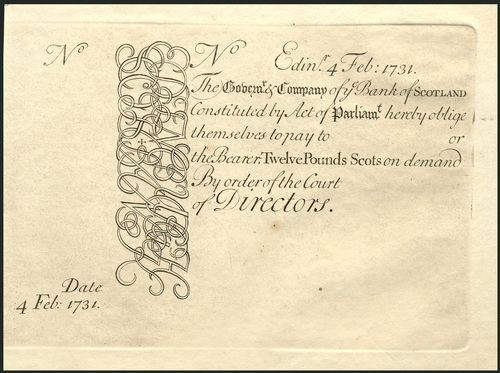 Nº
Nº
Edinʳ. 4 Feb: 1731.
The Governʳ. & Company of yᵉ Bank of SCOTLAND
Constituted by Act of Parliamᵗ. hereby oblige
themselves to pay to or
the Bearer, Twelve Pounds Scots on demand
By order of the Court
of Directors.
Date
4 Feb: 1731.